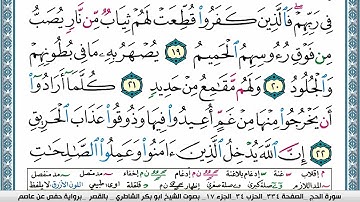 فِى رَبِّهِمْ فَٱلَّذِينَ كَفَرُوا۟ قُطِّعَتْ لَهُمْ ثِيَابٌ مِّن نَّارٍ يُصَبُّ
مِن فَوْقِ رُءُوسِهِمُ ٱلْحَمِيمُ ١٩ يُصْهَرُ بِهِۦ مَا فِى بُطُونِهِمْ
وَٱلْجُلُودُ ٢٠ وَلَهُم مَّقَٰمِعُ مِنْ حَدِيدٍ ٢١ كُلَّمَآ أَرَادُوٓا۟
أَن يَخْرُجُوا۟ مِنْهَا مِنْ غَمٍّ أُعِيدُوا۟ فِيهَا وَذُوقُوا۟ عَذَابَ ٱلْحَرِيقِ
٢٢ إِنَّ ٱللَّهَ يُدْخِلُ ٱلَّذِينَ ءَامَنُوا۟ وَعَمِلُوا۟ ٱلصَّٰلِحَٰتِ
سورة الحج الصفحة ٣٣٤ الحزب ٣٤ الجزء ١٧ بصوت الشيخ أبو بكر الشاطري بالقمر برواية حفص عن عاصم